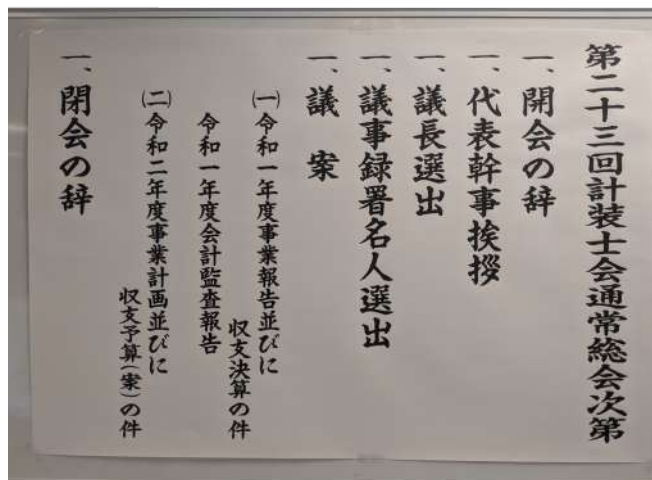 第二十三回計装士会通常総会次第
一、開会の辞
一、代表幹事挨拶
一、議長選出
一、議事録署名人選出
一、議　案
㈠令和一年度事業報告並びに
収支決算の件
令和一年度会計監査報告
㈡令和二年度事業計画並びに
収支予算(案)の件
一、閉会の辞